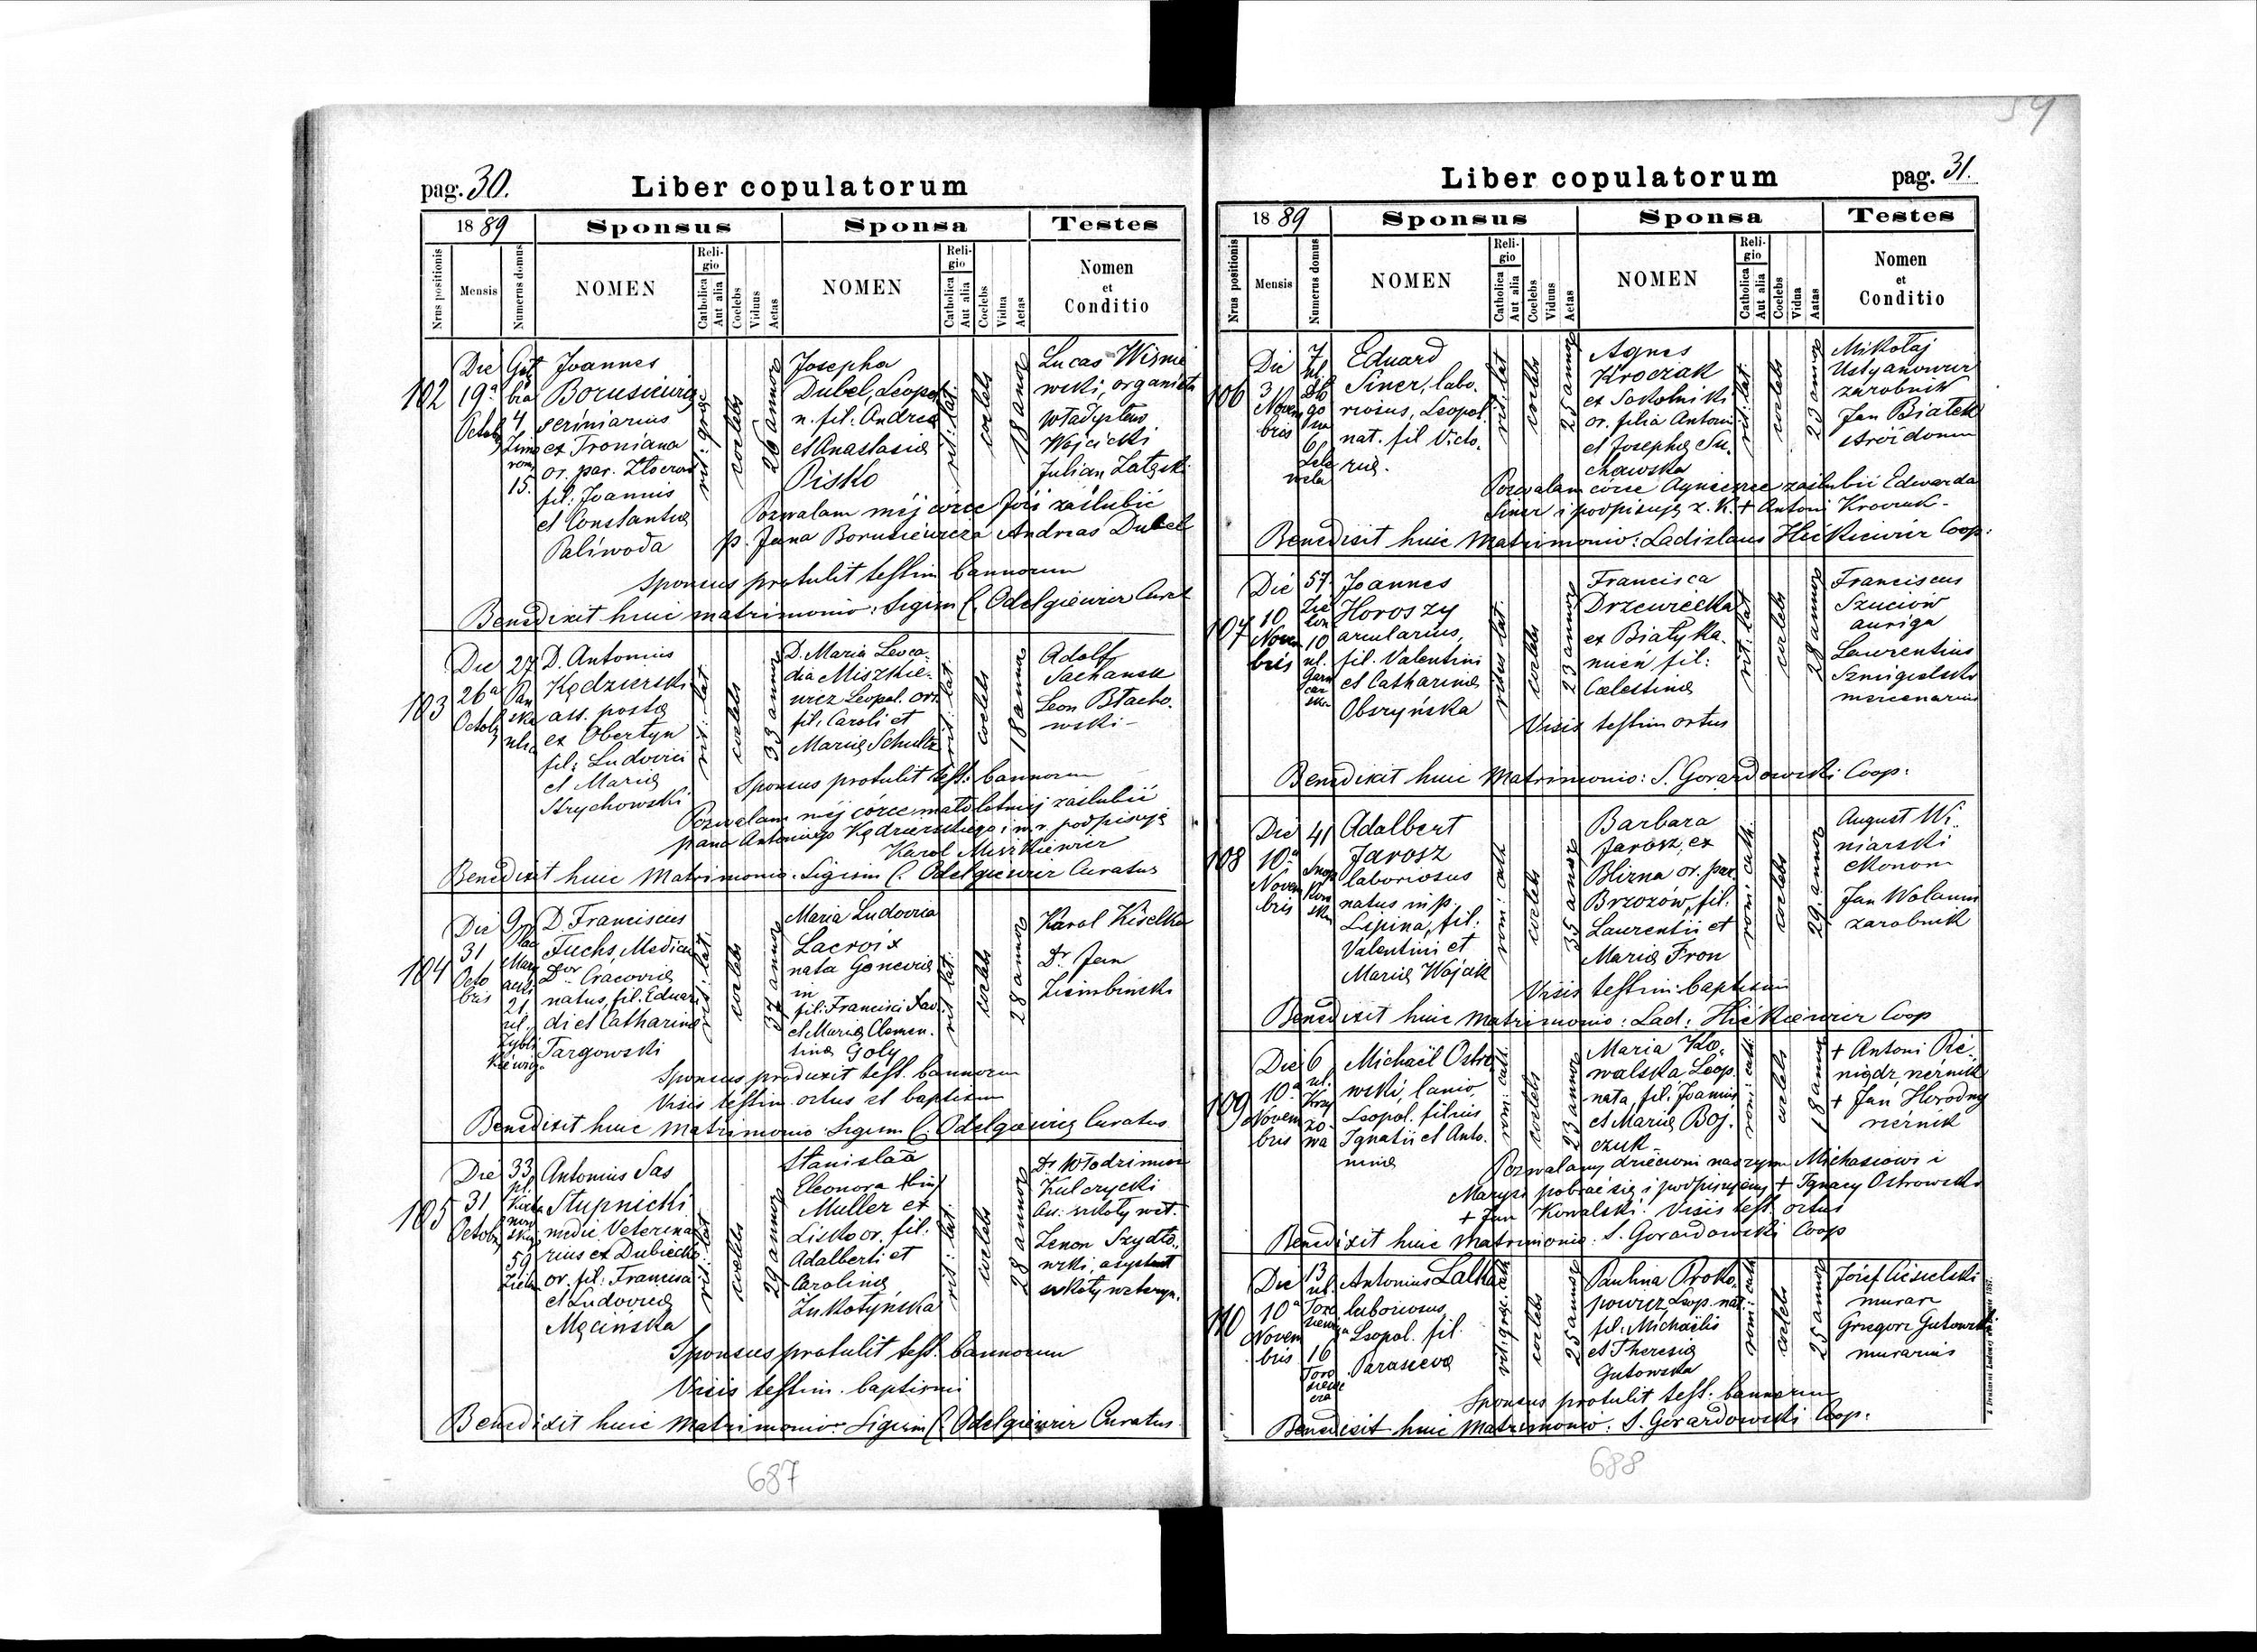 pag. 30.
Liber copulatorum
1889
Sponsus
Sponsa
Testes
Nrus positionis
Mensis
Numerus domus
NOMEN
Religio
Catholica
Aut alia
Coelebs
Viduus
Aetas
NOMEN
Religio
Catholica
Aut alia
Coelebs
Vidua
Aetas
Nomen
et
Conditio
102
Die
19a
Octob
4
15.
Joannes
Borusiewicz
scriniarius
ex Troniana
or. par.
fil: Joannis
et Constantia
Paliwoda
coelebs
26 annor
Josepha
Dubel, Leopol
n. fil: Andrea
et Anastasia
Pisko
rit: lat:
coelebs
18 annor
Lucas Wisnie
wski, organista
Władysław
Wojcicki
Julian
Pozwalam méj córce Józi zaślubić
p. Jana Borusiewicza Andreas Dubel
Sponsus protulit testim bannorum
Benedixit huic matrimonio: Sigism C. Odelgiewicz Curat
103
Die
26a
Octob
27
Pań
ska
ulica
D. Antonius
Kędzierski
ass. posta
ex Obertyn
fil: Ludovici
et Maria
Strychowski
rit: lat
coelebs
33 annor
D. Maria Leoca
dia Miszkie
wicz Leopol. or.
fil: Caroli et
Maria Schultz
rit: lat
coelebs
18 annor
Adolf
Sachanek
Leon Błacho
wski
Sponsus protulit test: bannorum
Pozwalam méj córce małoletniéj zaślubić
pana Antoniego Kędzierskiego i podpisuję
Karol Miszkiewicz
Benedixit huic Matrimonio. Sigism C. Odelgiewicz Curatus
104
Die
31
Octo
bris
9
plac
Mary
acki
21
ul.
Zybli
kiewicza
D. Franciscus
Fuchs, Medicin
Dor Cracovia
natus, fil. Eduar
di et Catharina
Targowski
rit: lat.
coelebs
37 annor
Maria Ludovica
Lacroix
nata Genevia
in
fil: Francisci
et Maria Clemen
tina Goly
rit lat:
coelebs
28 annor
Karol Kiselka
Dr Jan
Ziembiński
Sponsus produxit test. bannorum
Visis testim. ortus et baptism
Benedixit huic Matrimonio Sigism C. Odelgiewicz Curatus
105
Die
31
Octob
33
59
Antonius Sas
Stupnicki
medic Veterina
rius ex Dubiecko
or. fil: Francisca
et Ludovica
Męcińska
rit: lat
coelebs
29 annor
Stanislaa
Eleonora
Muller ex
Lisko or. fil:
Adalberti et
Carolina
Żukotyńska
rit: lat.
coelebs
28 annor
Dr Włodzimierz
Kulczycki
szkoły wet.
Zenon Szydło
wski, asystent
szkoły weteryn.
Sponsus protulit test. bannorum
Visis testim. baptismi
Benedixit huic Matrimonio Sigism C. Odelgiewicz Curatus
687
59
Liber copulatorum
pag. 31.
1889
Sponsus
Sponsa
Testes
Nrus positionis
Mensis
Numerus domus
NOMEN
Religio
Catholica
Aut alia
Coelebs
Viduus
Aetas
NOMEN
Religio
Catholica
Aut alia
Coelebs
Vidua
Aatas
Nomen
et
Conditio
106
Die
3
Novem
bris
7
ul.
6
Lele
wela
Eduard
Siner, labo
riosus, Leopol
nat. fil Victo
ria.
rit: lat
coelebs
25 annor
Agnes
Kroczak
ex Sokolniki
or. filia Antoni
et Josepha Su
chowska
rit: lat:
coelebs
23 annor
Mikołaj
Ustyanowicz
zarobnik
Jan Białek
stróż domu
Pozwalam córce Agnieszce zaślubić Edwarda
Siner i podpisuję z. K. + Antoni Kroczak
Benedixit huic Matrimonio: Ladislaus Hićkiewicz Coop:
107
Die
10
Novem
bris
57
Zie
lon
10
ul.
Garn
car
ska
Joannes
Horoszy
arcularius,
fil. Valentini
et Catharina
Obszyńska
ritus lat.
coelebs
23 annor
Francisca
Drzewiecka
ex Białyka
mień fil:
Caelestina
rit: lat
coelebs
28 annor
Franciscus
Szuciów
auriga
Laurentius
Szmigielski
mercenarius
Visis testim ortus
Benedixit huic Matrimonio: S. Gorardowski Coop:
108
Die
10a
Novem
bris
41
Adalbert
Jarosz
laboriosus
natus in p.
Lipina, fil:
Valentini et
Maria Wojcik
rom: cath
coelebs
35 annor
Barbara
Jarosz, ex
Blizna or. par.
Brzozów, fil:
Laurentii et
Maria Fron
rom: cath.
coelebs
29. annor
August Wi
niarski
ekonom
Jan Wołanin
zarobnik
Visis testim: baptism
Benedixit huic Matrimonio: Lad: Hićkiewicz Coop
109
Die
10a
Novem
bris
6
ul.
Krzy
żo
wa
Michaël Ostro
wski, lanio
Leopol. filius
Ignatii et Anto
nina
rom: cath:
coelebs
23 annor
Maria Ko
walska Leop.
nata, fil. Joannis
et Maria Boj
czuk
rom: cath:
coelebs
18 annor
+ Antoni Pie
niądz, rzeźnik
+ Jan Horodny
rzeźnik
Pozwalamy dzieciom naszym Michasiowi i
Marysi pobrać się i podpisujemy + Ignacy Ostrowski
+ Jan Kowalski. Visis test. ortus
Benedixit huic Matrimonio. S. Gorardowski Coop
110
Die
10a
Novem
bris
13
ul.
16
Antonius Lalka
laboriosus
Leopol. fil.
Parasceva
rit: graec. cath
coelebs
25 annor
Paulina Proko
powicz, Leop. nat.
fil: Michaelis
et Theresia
Gutowska
rom: cath
coelebs
25 annor
Józef Ciesielski
murarz
Grzegorz Gutowski
murarius
Sponsus protulit test: bannorum
Benedixit huic Matrimonio: S. Gorardowski Coop:
688